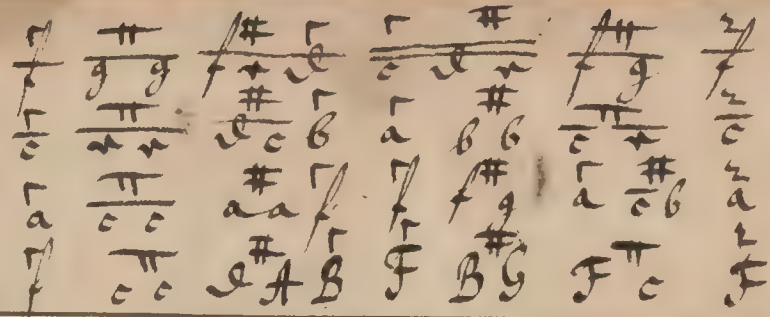 f g g f e d c d e f g f
c e e d c b a b b c e c
a c c a a f f f g a c b a
f c c d A B F B G F c F